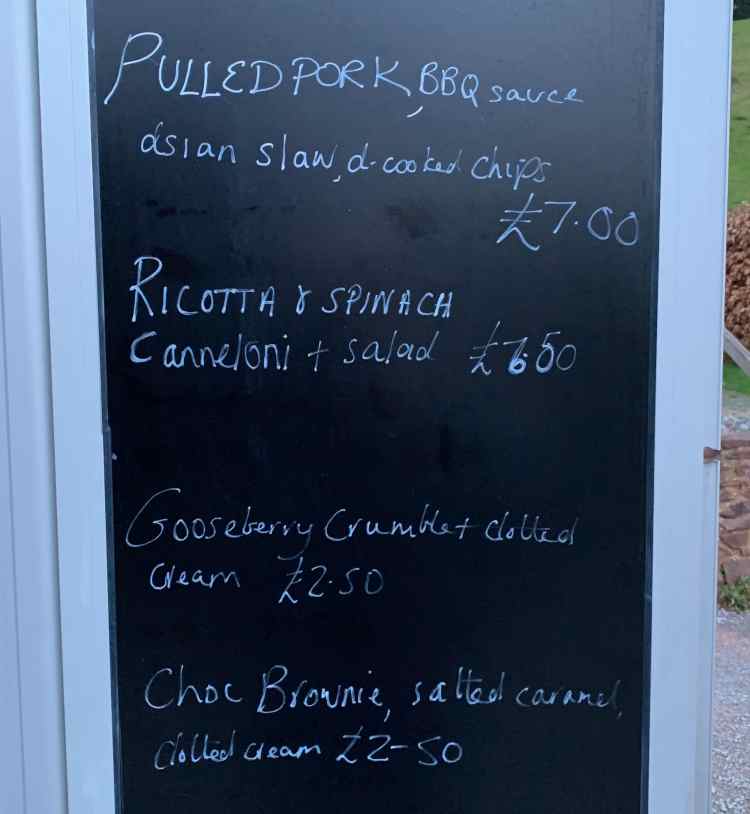 PULLED PORK, BBQ sauce
asian slaw, d-cooked chips
£7.00
RICOTTA & SPINACH
Canneloni + salad
Gooseberry Crumble + clotted
cream £2.50
Choc Brownie, salted caramel,
clotted cream £2-50